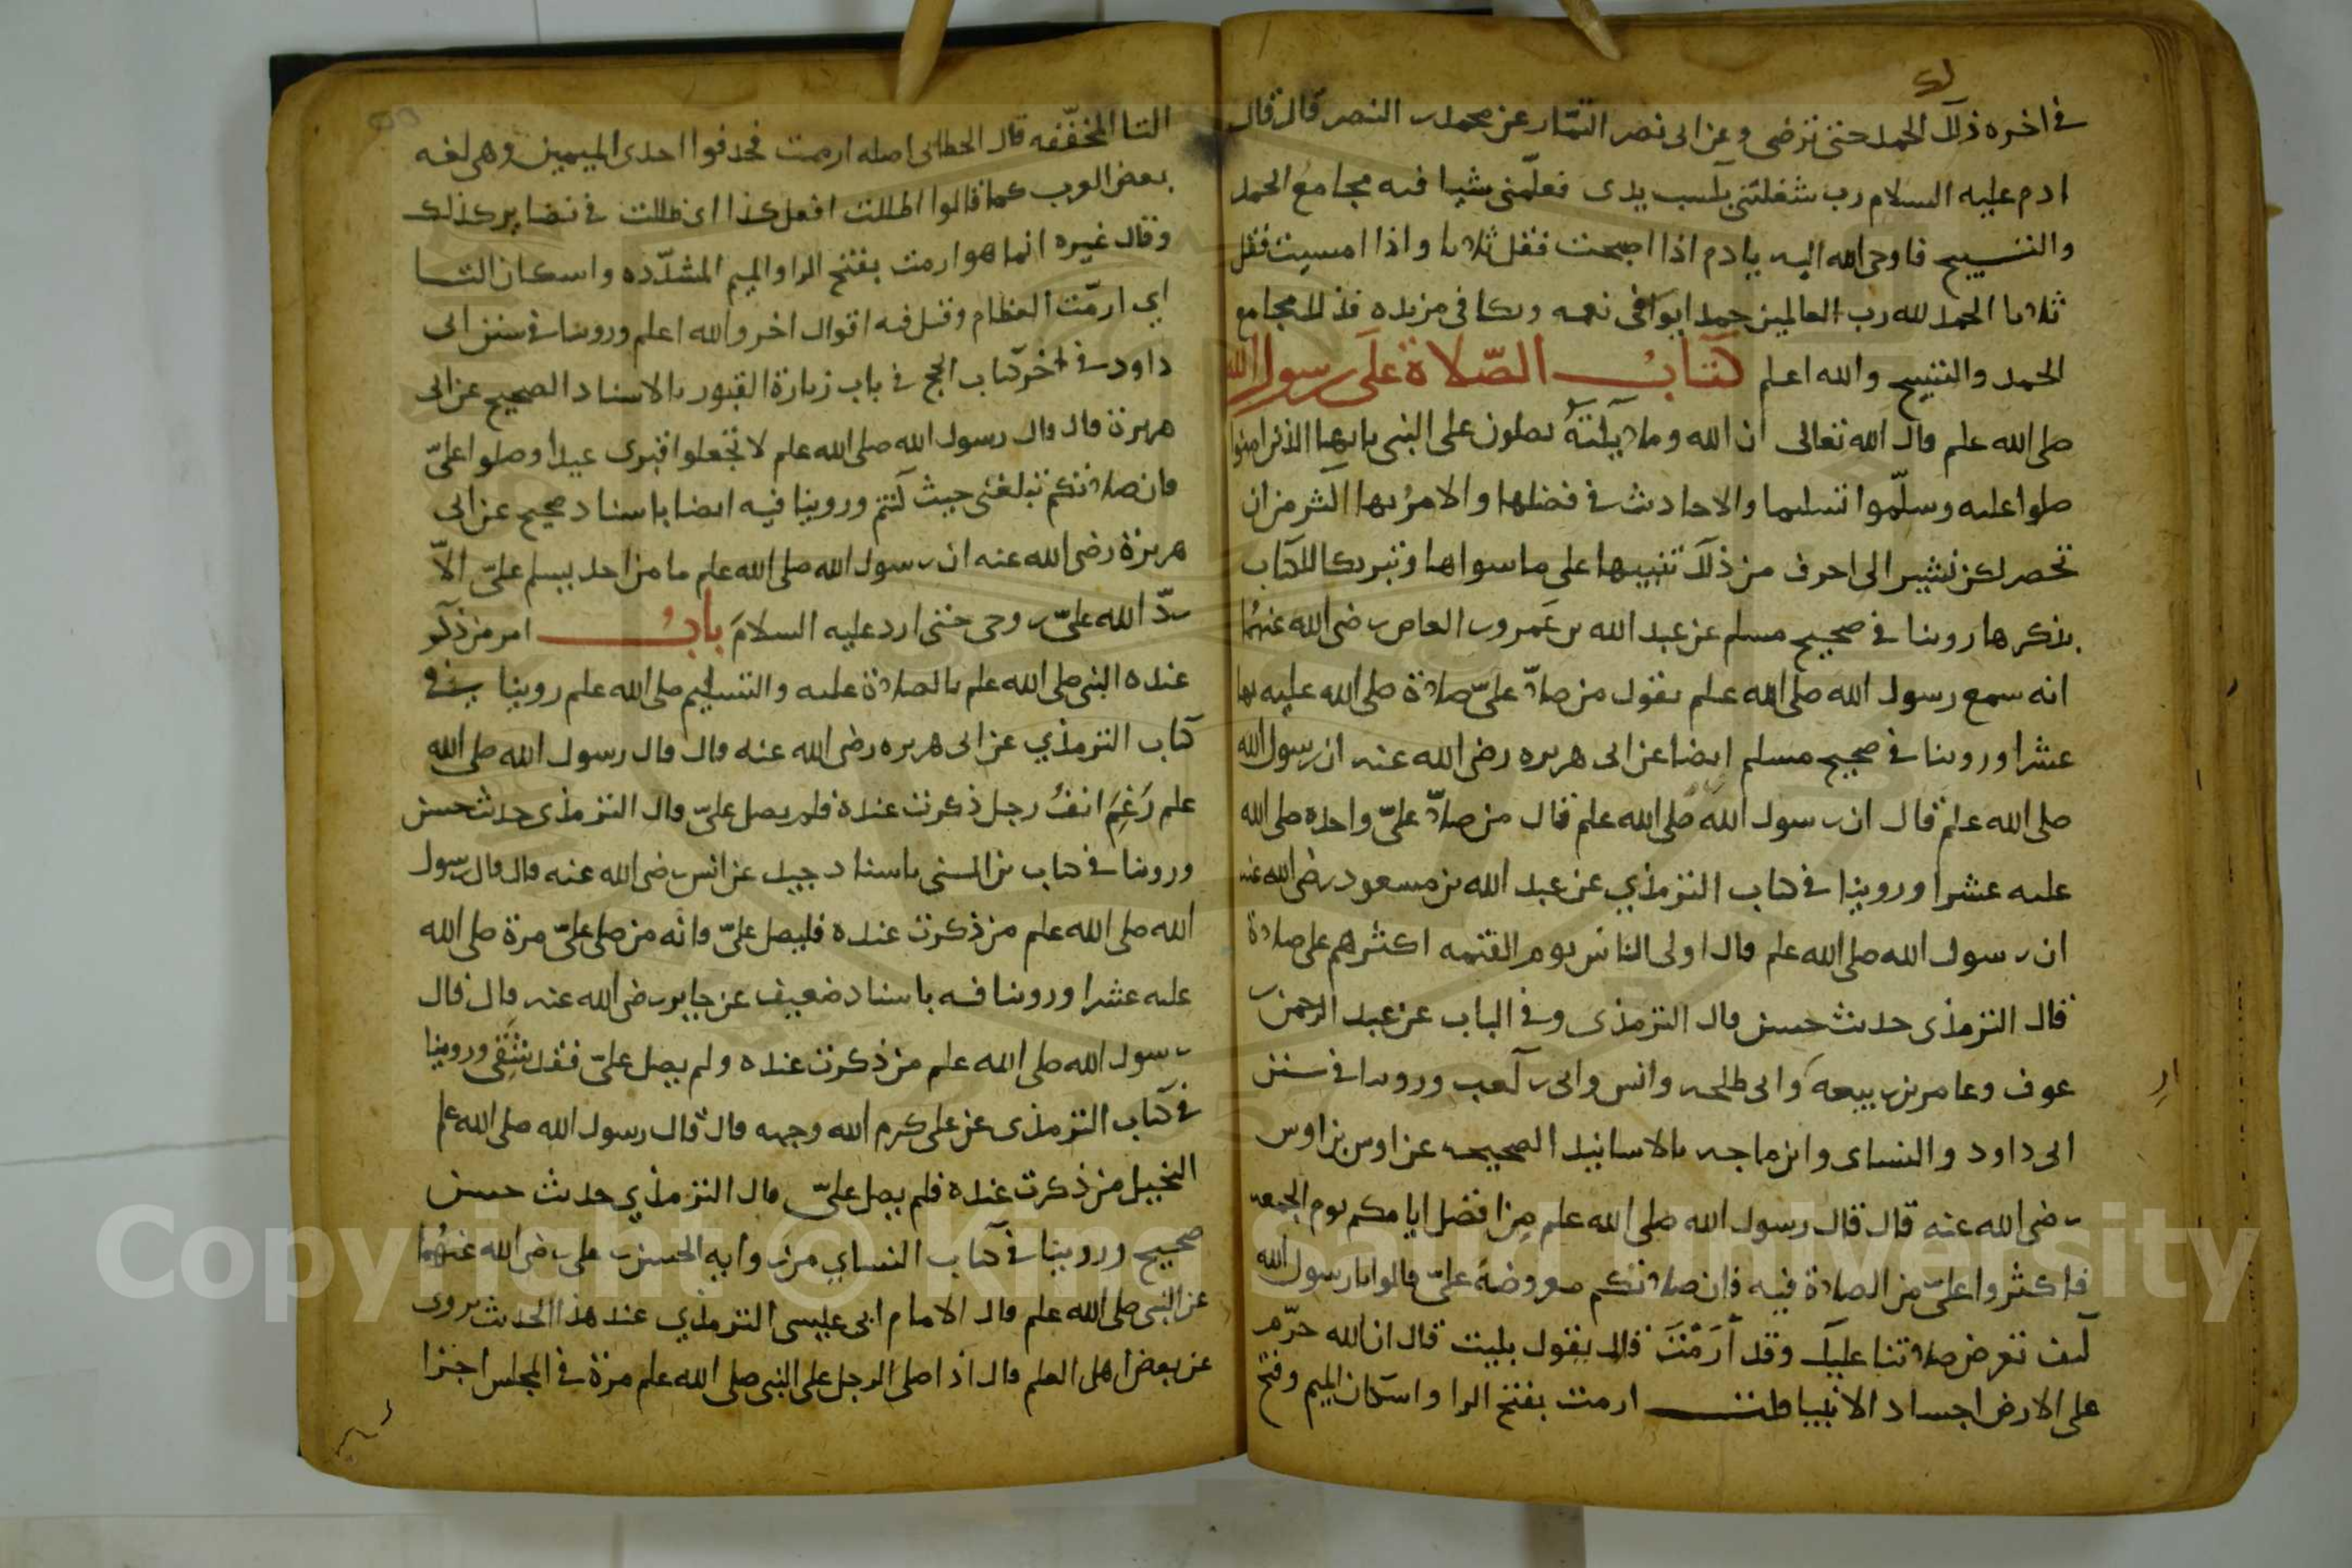 لك
في اخره ذلك الحمد حتى ترضى وعن ابى نصر التمّار عن محمد بن النضر قال قال
ادم عليه السلام رب شغلتنى بكسب يدى فعلّمنى شيا فيه مجامع الحمد
والتسبيح فاوحى الله اليه يادم اذا اصبحت فقل ثلاثا واذا امسيت فقل
ثلاثا الحمد لله رب العالمين حمدا يوافى نعمه ويكافى مزيده فذلك مجامع
الحمد والتسبيح والله اعلم كتابُ الصّلاة على رسول الله
صلى الله علم قال الله تعالى ان الله وملايكتهُ يصلون على النبى يايها الذين امنوا
صلوا عليه وسلّموا تسليما والاحاديث في فضلها والامرُ بها اكثر من ان
تحصر لكن نشير الى احرف من ذلك تنبيها على ما سواها وتبركا للكتاب
بذكرها روينا في صحيح مسلم عن عبد الله بن عَمرو بن العاص رضى الله عنهُما
انه سمع رسول الله صلى الله علم يقول من صلاّ علىّ صلاة صلى الله عليه بها
عشرا وروينا في صحيح مسلم ايضا عن ابى هريره رضى الله عنه ان رسول الله
صلى الله علم قال ان رسول الله صلى الله علم قال من صلاّ علىّ واحده صلى الله
عليه عشرا وروينا في كتاب الترمذي عن عبد الله بن مسعود رضى الله عنه
ان رسول الله صلى الله علم قال اولى الناس يوم القيمه اكثرهم على صلاة
قال الترمذى حديث حسن قال الترمذى وفي الباب عن عبد الرحمن بن
عوف وعامر بن ربيعه وابى طلحه وانس وابى بن كعب وروينا في سنن
ابى داود والنساى وابن ماجه بالاسانيد الصحيحه عن اوس بن اوس
رضى الله عنه قال قال رسول الله صلى الله علم مِن افضل ايامكم يوم الجمعه
فاكثروا علىّ من الصلاة فيه فان صلاتكم معروضة علىّ قالوا يا رسول الله
كيف تعرض صلاتنا عليك وقد أَرَمْتَ قال يقول بليت قال ان الله حرّم
على الارض اجساد الانبيا قلت ارمت بفتح الرا واسكان الميم وفتح
التا المخفّفه قال الخطابى اصله ارممت فحدفوا احدى الميمين وهى لغه
بعض العرب كما قالوا اظللت افعل كذا اى ظللت في نضاير كذلك
وقال غيره انما هو ارمت بفتح الرا والميم المشدّده واسكان التا
اي ارمّت العظام وقيل فيه اقوال اخر والله اعلم وروينا في سنن ابى
داود في اخر كتاب الحج في باب زيارة القبور بالاسناد الصحيح عن ابى
هريرة قال قال رسول الله صلى الله علم لا تجعلوا قبرى عيدا وصلوا علىّ
فان صلاتكم تبلغنى حيث كنتم وروينا فيه ايضا باسناد صحيح عن ابى
هريرة رضى الله عنه ان رسول الله صلى الله علم ما من احد يسلم علىّ الاّ
ردّ الله علىّ روحى حتى ارد عليه السلامَ بابُ امر من ذكر
عنده النبى صلى الله علم بالصلاة عليه والتسليم صلى الله علم روينا في
كتاب الترمذي عن ابى هريره رضى الله عنه قال قال رسول الله صلى الله
علم رَغِمَ انفُ رجل ذكرت عنده فلم يصل علىّ قال الترمذى حديث حسن
وروينا في كتاب بن السنى باسناد جيد عن انس رضى الله عنه قال قال رسول
الله صلى الله علم من ذكرت عنده فليصل علىّ فانه من صلى علىّ مرة صلى الله
عليه عشرا وروينا فيه باسناد ضعيف عن جابر رضى الله عنه قال قال
رسول الله صلى الله علم من ذكرت عنده ولم يصل علىّ فقد شقى وروينا
في كتاب الترمذى عن على كرم الله وجهه قال قال رسول الله صلى الله علم
البخيل من ذكرت عنده فلم يصل علىّ قال الترمذي حديث حسن
صحيح وروينا في كتاب النساي من روايه الحسن بن على رضى الله عنهُما
عن النبى صلى الله علم قال الامام ابى عيسى الترمذي عند هذا الحديث يروى
عن بعض اهل العلم قال اذا صلى الرجل على النبى صلى الله علم مرة في المجلس اجزا
Copyright © King Saud University